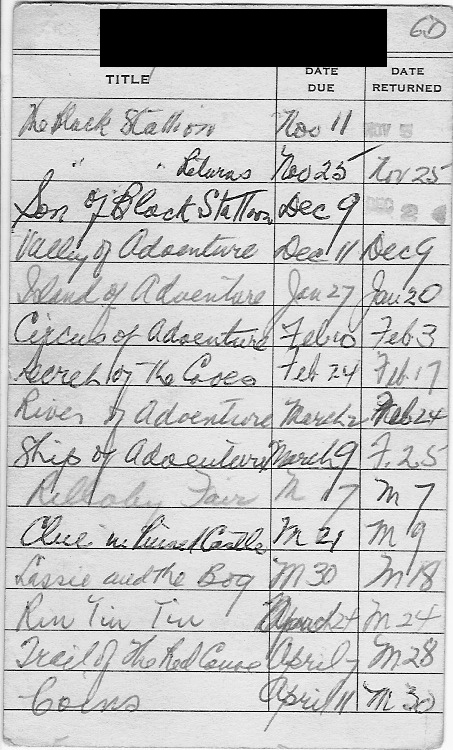 GD
TITLE DATE DUE DATE RETURNED
The Black Stallion Nov 11 NOV 5
" " Returns Nov 25 Nov 25
Son of Black Stallion Dec 9 DEC 24
Valley of Adventure Dec 11 Dec 9
Island of Adventure Jan 27 Jan 20
Circus of Adventure Feb 10 Feb 3
Secret of The Caves Feb 24 Feb 17
River of Adventure March 2 Feb 24
Ship of Adventure March 9 F. 25
Fair M 17 M 7
Clue in Ruined Castle M 21 M 9
Lassie and the Bog M 30 M 18
Rin Tin Tin M 24
Trail of The Red Canoe April 7 M 28
Coins April 11 M 30